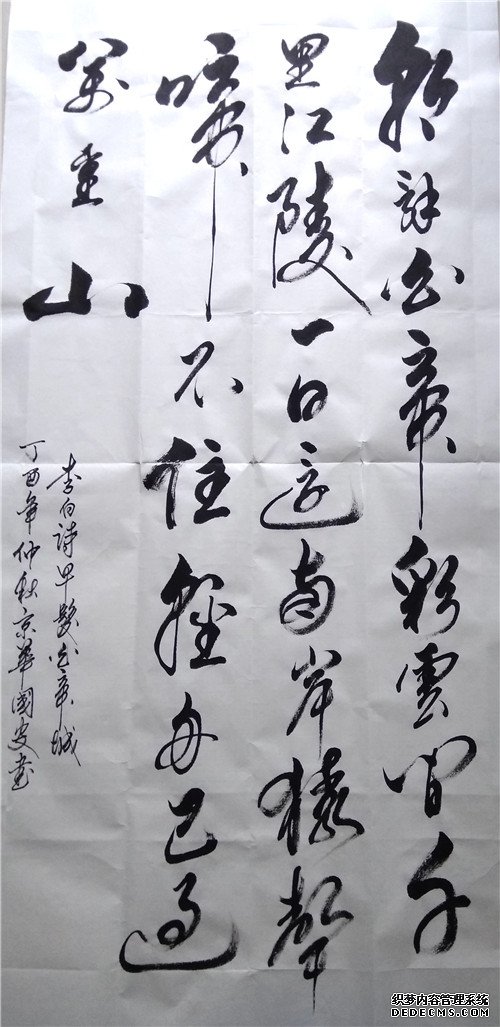 朝辞白帝彩雲间千
里江陵一日還两岸猿聲
啼不住輕舟已过
萬重山
李白詩早發白帝城
丁酉年仲秋京華國安书
织梦内容管理系统
DEDECMS.COM